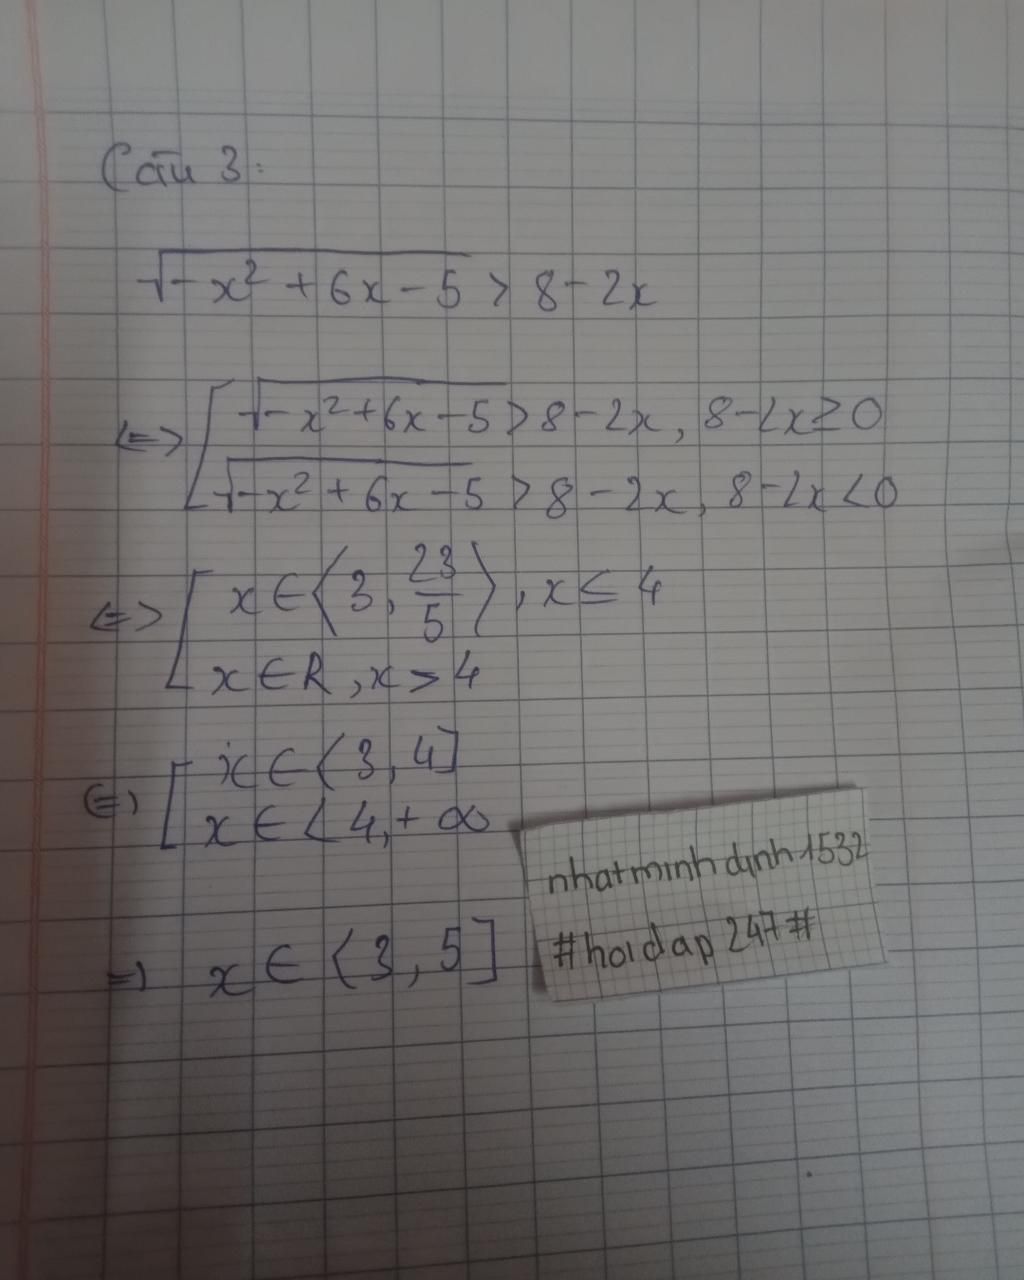 Câu 3:
√-x² + 6x - 5 > 8 - 2x
<=> [ √-x² + 6x - 5 > 8 - 2x, 8 - 2x ≥ 0
√-x² + 6x - 5 > 8 - 2x, 8 - 2x < 0
<=> [ x ∈ ⟨3, 23/5⟩, x ≤ 4
x ∈ R, x > 4
<=> [ x ∈ ⟨3, 4]
x ∈ ⟨4, + ∞
=> x ∈ ⟨3, 5]
nhatminhdinh1532
#hoidap247#